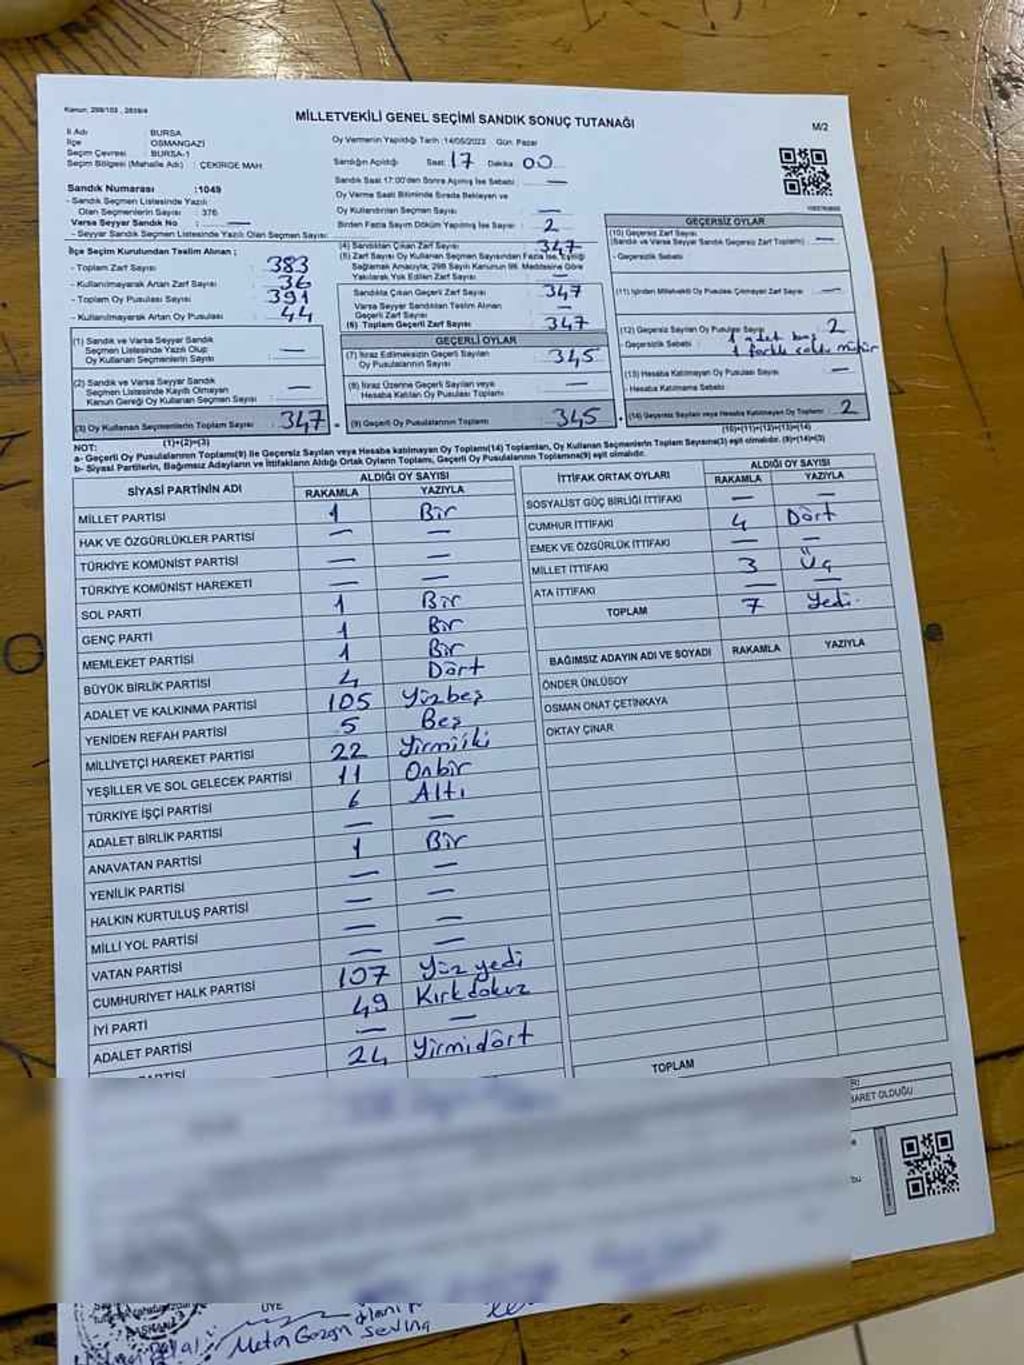 Kanun: 298/103 , 2839/4
MİLLETVEKİLİ GENEL SEÇİMİ SANDIK SONUÇ TUTANAĞI
M/2
İl Adı : BURSA
İlçe : OSMANGAZİ
Seçim Çevresi : BURSA-1
Seçim Bölgesi (Mahalle Adı) : ÇEKİRGE MAH.
Oy Vermenin Yapıldığı Tarih :14/05/2023 Gün: Pazar
Sandığın Açıldığı Saat: 17 Dakika 00
Sandık Saat 17:00'den Sonra Açılmış İse Sebebi : —
Oy Verme Saati Bitiminde Sırada Bekleyen ve
Oy Kullandırılan Seçmen Sayısı : —
Birden Fazla Sayım Döküm Yapılmış İse Sayısı : 2
Sandık Numarası :1049
- Sandık Seçmen Listesinde Yazılı
Olan Seçmenlerin Sayısı : 376
Varsa Seyyar Sandık No : —
- Seyyar Sandık Seçmen Listesinde Yazılı Olan Seçmen Sayısı:
İlçe Seçim Kurulundan Teslim Alınan ;
- Toplam Zarf Sayısı : 383
- Kullanılmayarak Artan Zarf Sayısı : 36
- Toplam Oy Pusulası Sayısı : 391
- Kullanılmayarak Artan Oy Pusulası : 44
(1) Sandık ve Varsa Seyyar Sandık
Seçmen Listesinde Yazılı Olup
Oy Kullanan Seçmenlerin Sayısı : —
(2) Sandık ve Varsa Seyyar Sandık
Seçmen Listesinde Kayıtlı Olmayan
Kanun Gereği Oy Kullanan Seçmen Sayısı : —
(3) Oy Kullanan Seçmenlerin Toplam Sayısı : 347
(1)+(2)=(3)
(4) Sandıktan Çıkan Zarf Sayısı : 347
(5) Zarf Sayısı Oy Kullanan Seçmen Sayısından Fazla İse, Eşitliği
Sağlamak Amacıyla; 298 Sayılı Kanunun 98. Maddesine Göre
Yakılarak Yok Edilen Zarf Sayısı : —
Sandıkta Çıkan Geçerli Zarf Sayısı : 347
Varsa Seyyar Sandıktan Teslim Alınan
Geçerli Zarf Sayısı : —
(6) Toplam Geçerli Zarf Sayısı : 347
GEÇERLİ OYLAR
(7) İtiraz Edilmeksizin Geçerli Sayılan
Oy Pusulalarının Sayısı : 345
(8) İtiraz Üzerine Geçerli Sayılan veya
Hesaba Katılan Oy Pusulası Toplamı : —
= (9) Geçerli Oy Pusulalarının Toplamı : 345
GEÇERSİZ OYLAR
(10) Geçersiz Zarf Sayısı
(Sandık ve Varsa Seyyar Sandık Geçersiz Zarf Toplamı) : —
- Geçersizlik Sebebi :
(11) İçinden Milletvekili Oy Pusulası Çıkmayan Zarf Sayısı : —
(12) Geçersiz Sayılan Oy Pusulası Sayısı : 2
- Geçersizlik Sebebi : 1 adet boş
1 farklı
(13) Hesaba Katılmayan Oy Pusulası Sayısı : —
- Hesaba Katılmama Sebebi :
+ (14) Geçersiz Sayılan veya Hesaba Katılmayan Oy Toplamı : 2
(10)+(11)+(12)+(13)=(14)
NOT:
a- Geçerli Oy Pusulalarının Toplamı(9) ile Geçersiz Sayılan veya Hesaba katılmayan Oy Toplamı(14) Toplamları, Oy Kullanan Seçmenlerin Toplam Sayısına(3) eşit olmalıdır. (9)+(14)=(3)
b- Siyasi Partilerin, Bağımsız Adayların ve İttifakların Aldığı Ortak Oyların Toplamı, Geçerli Oy Pusulalarının Toplamına(9) eşit olmalıdır.
SİYASİ PARTİNİN ADI ALDIĞI OY SAYISI
RAKAMLA YAZIYLA
MİLLET PARTİSİ 1 Bir
HAK VE ÖZGÜRLÜKLER PARTİSİ — —
TÜRKİYE KOMÜNİST PARTİSİ — —
TÜRKİYE KOMÜNİST HAREKETİ — —
SOL PARTİ 1 Bir
GENÇ PARTİ 1 Bir
MEMLEKET PARTİSİ 1 Bir
BÜYÜK BİRLİK PARTİSİ 4 Dört
ADALET VE KALKINMA PARTİSİ 105 Yüzbeş
YENİDEN REFAH PARTİSİ 5 Beş
MİLLİYETÇİ HAREKET PARTİSİ 22 Yirmiiki
YEŞİLLER VE SOL GELECEK PARTİSİ 11 Onbir
TÜRKİYE İŞÇİ PARTİSİ 6 Altı
ADALET BİRLİK PARTİSİ — —
ANAVATAN PARTİSİ 1 Bir
YENİLİK PARTİSİ — —
HALKIN KURTULUŞ PARTİSİ — —
MİLLİ YOL PARTİSİ — —
VATAN PARTİSİ — —
CUMHURİYET HALK PARTİSİ 107 Yüz yedi
İYİ PARTİ 49 Kırkdokuz
ADALET PARTİSİ — —
24 Yirmidört
İTTİFAK ORTAK OYLARI ALDIĞI OY SAYISI
RAKAMLA YAZIYLA
SOSYALİST GÜÇ BİRLİĞİ İTTİFAKI — —
CUMHUR İTTİFAKI 4 Dört
EMEK VE ÖZGÜRLÜK İTTİFAKI — —
MİLLET İTTİFAKI 3 Üç
ATA İTTİFAKI — —
TOPLAM 7 Yedi.
BAĞIMSIZ ADAYIN ADI VE SOYADI RAKAMLA YAZIYLA
ÖNDER ÜNLÜSOY
OSMAN ONAT ÇETİNKAYA
OKTAY ÇINAR
TOPLAM
OLDUĞU
ÜYE
Metin
Sevinç